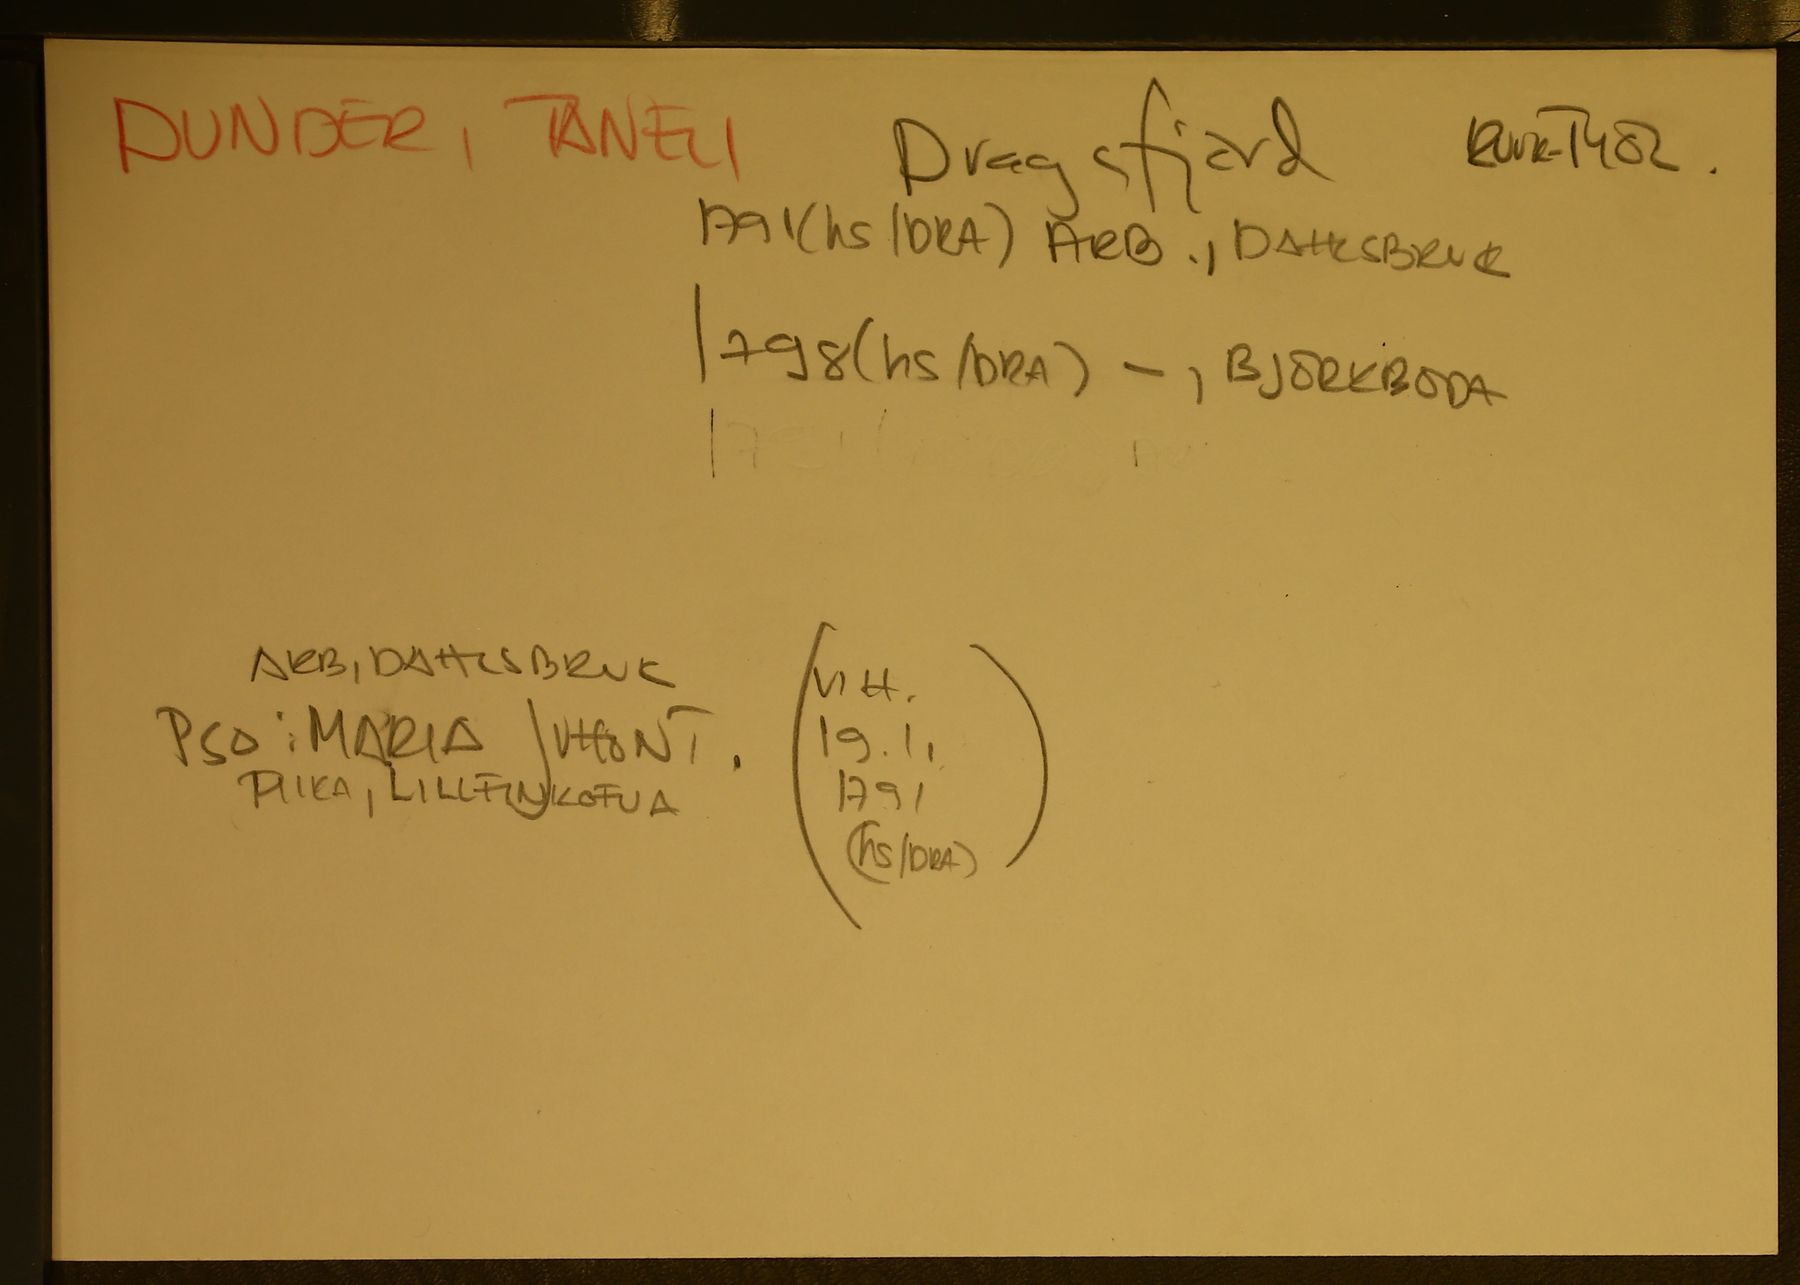 DUNDER, TANELI Dragsfjärd RUUKTYÖL.
1791 (hs/DRA) ARB., DAHLSBRUK
1798 (hs/DRA) –, BJÖRKBODA
ARB, DAHLSBRUK
PSO: MARIA JUHONT.
PIIKA, LILLFINHOFVA
(VIH.
19.1.
1791
(hs/DRA))